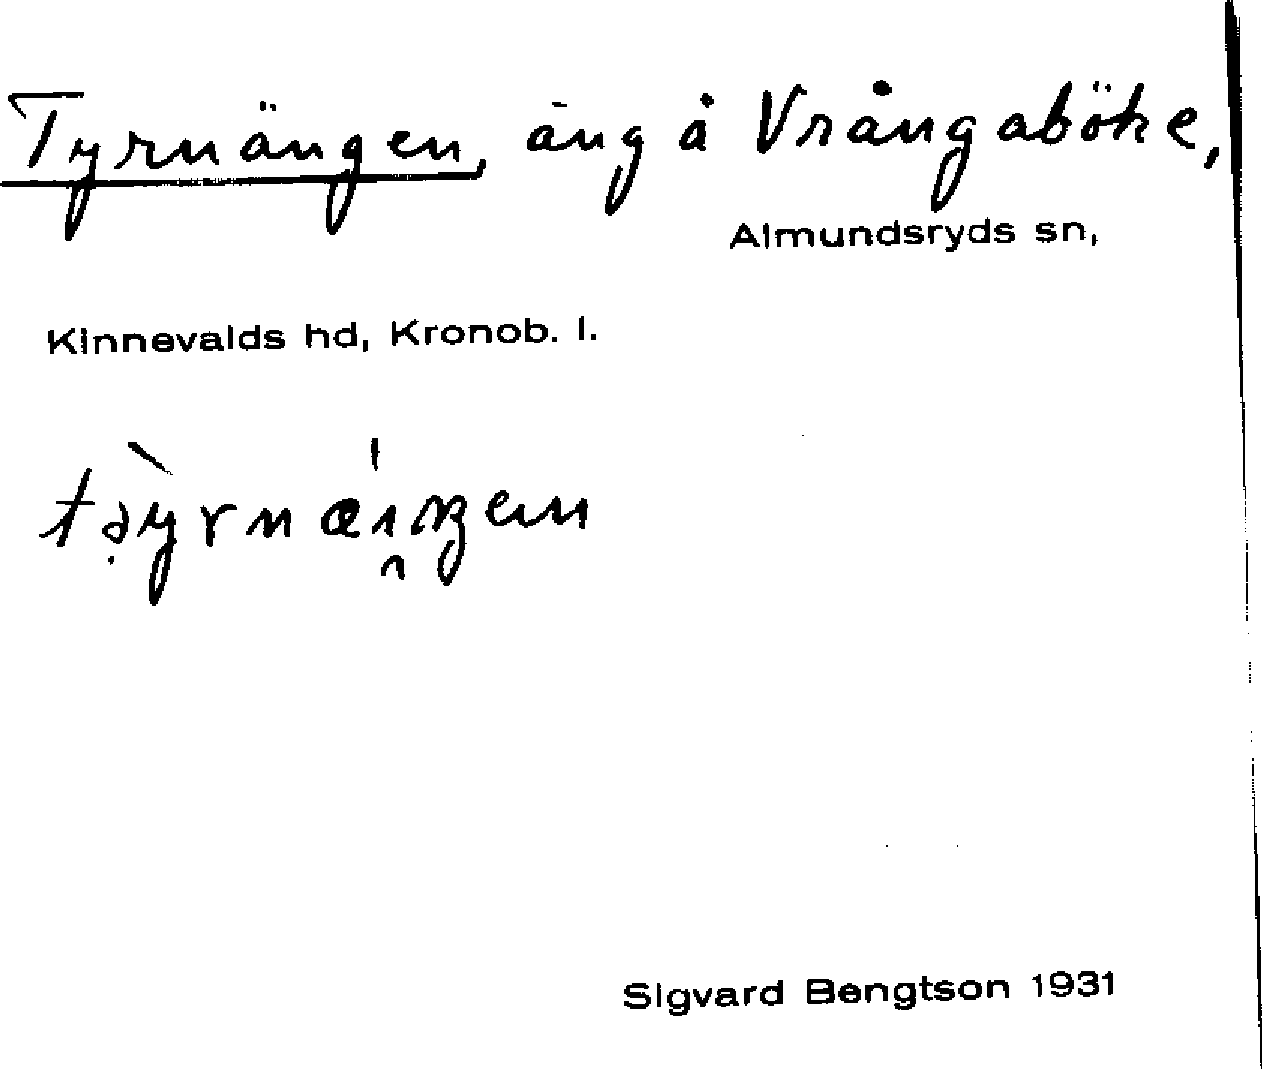 Tyrnängen, äng å Vrångaböke,
Almundsryds sn,
Kinnevalds hd, Kronob. l.
Sigvard Bengtson 1931